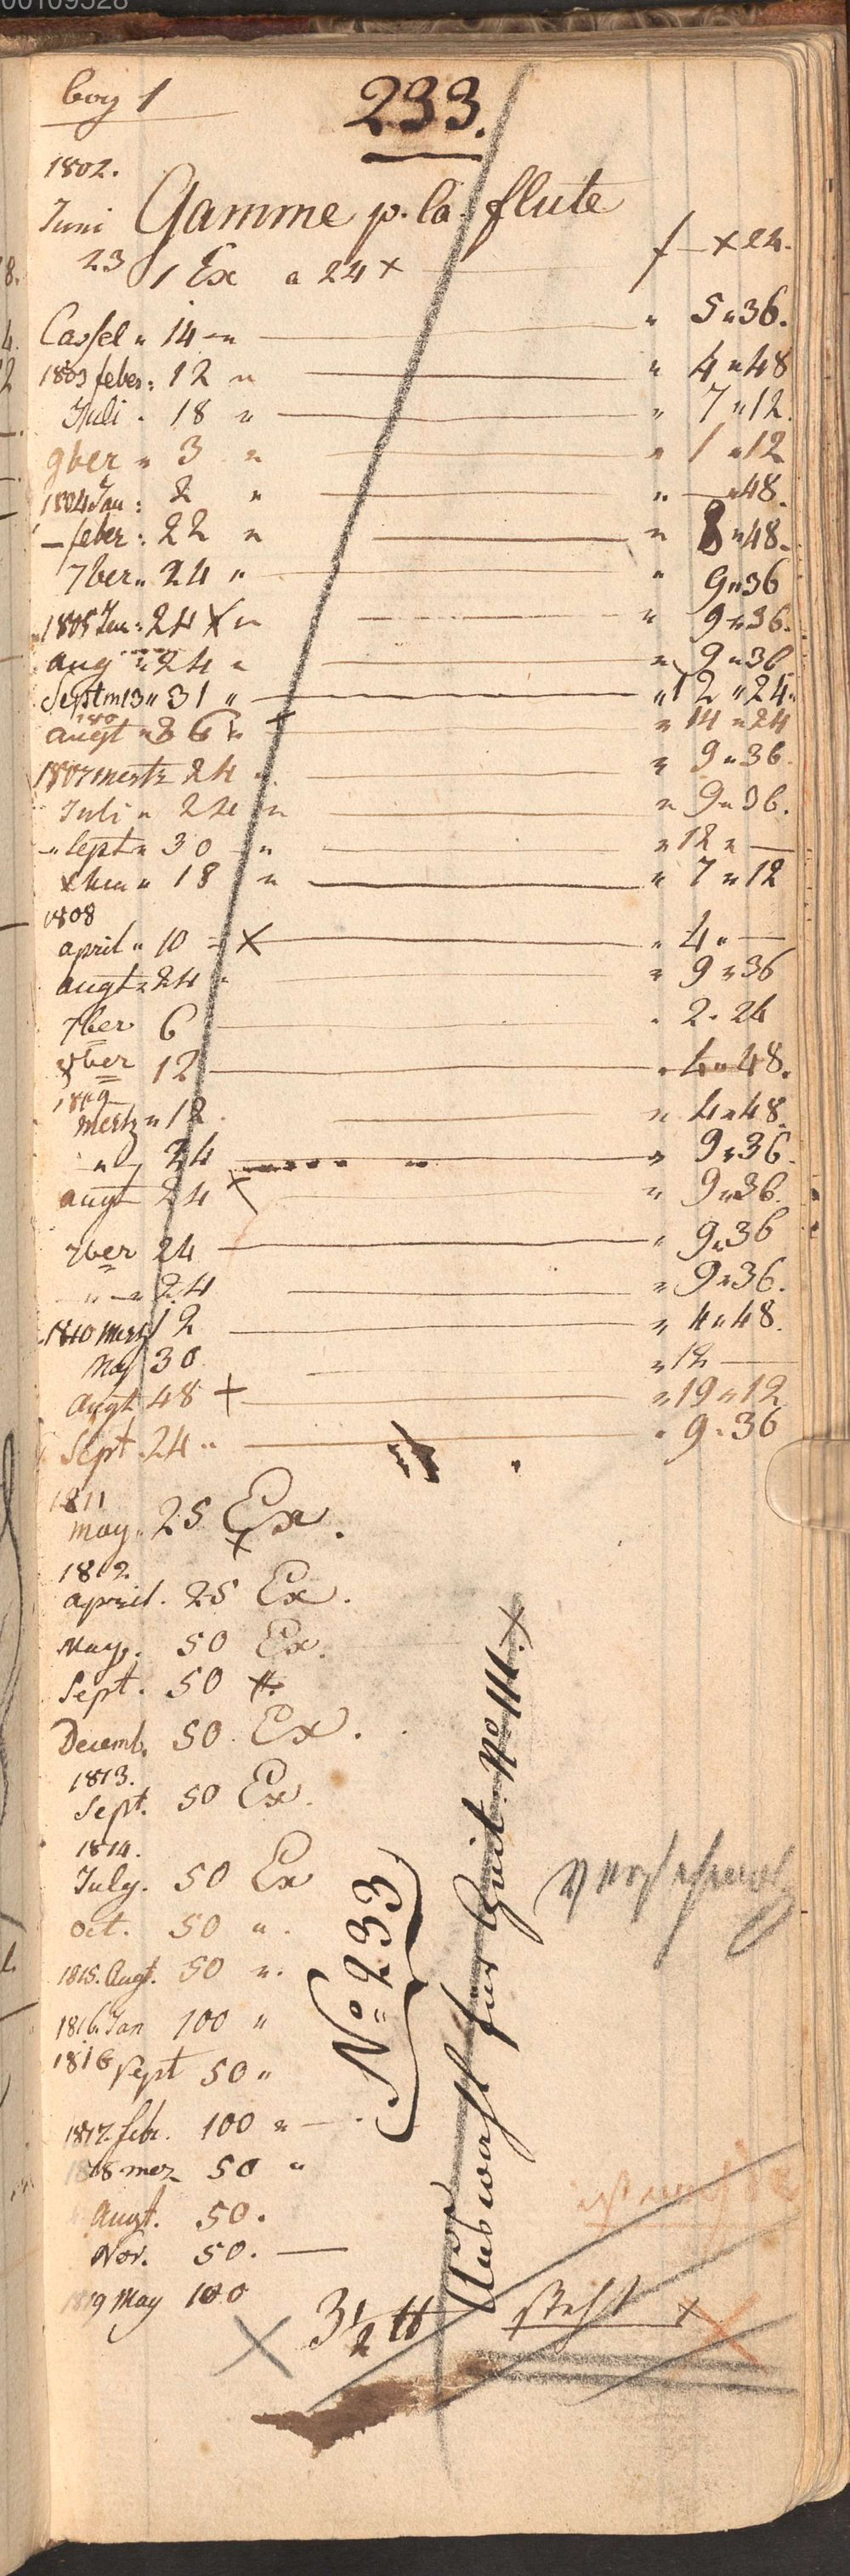 bog 1
233.
1802.
Juni Gamme p. la flute
23 1 Ex a 24 x f — x 24.
Cassel " 14 — " " 5 " 36.
1803 feber : 12 " " 4 " 48
Juli . 18 " " 7 " 12.
9ber " 3 " " 1 " 12
1804 Jan : 2 " " — " 48.
— feber : 22 " " 8 " 48.
7ber " 24 " " 9 " 36
1805 Jan : 24 X " " 9 " 36.
aug " 24 " " 9 " 36
Septm 13 " 31 " " 12 " 24.
augt " 36 " " 14 " 24
1807 mertz 24 " " 9 " 36.
Juli " 24 " " 9 " 36.
— " Sept " 30 — " " 12 " —
18 " " 7 " 12
1808
april " 10 — X " 4 " —
augt " 24 " " 9 " 36
7ber 6 . 2 . 24
8ber 12 " 4 " 48.
1809
Mertz " 12 . " 4 " 48.
— " 24 " 9 " 36.
augt 24 x " 9 " 36.
7ber 24 " 9 " 36
" — " 24 " 9 " 36.
1810 Mertz 12 " 4 " 48.
May 30 " 12 —
Augt 48 + " 19 " 12
Sept . 24 " " 9 . 36
1811
may . 25 Ex .
x
1812.
april . 25 Ex .
May . 50 Ex .
Sept . 50
Decemb . 50 . Ex .
1813.
Sept . 50 Ex .
1814.
July . 50 Ex
oct . 50 " .
1815. Augt . 50 " .
1816 Jan 100 "
1816 Sept 50 "
1817. febr . 100 " — .
1818 mez 50 "
Augt . 50 .
Nov . 50 . —
1819 May 100
X 3 1/2 tt
steht x
No 233
Auswahl für Guit . No III . x